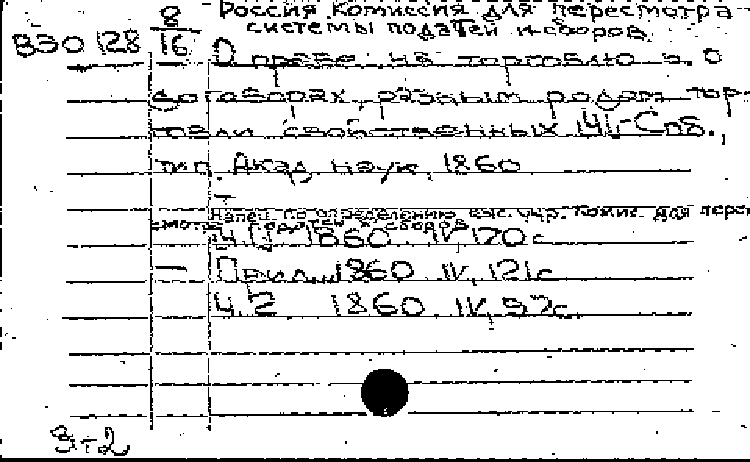 Россия. Комиссия для пересмотра
системы податей и сборов.
ВЭО 128 8/16
О праве на торговлю и о
договорах, разным родам тор-
говли свойственных. Ч.1- Спб.,
тип. Акад. наук, 1860
Напеч. по определению выс. учр. комис. для пере-
смотра податей и сборов
Ч.1. 1860. IV, 170 с
— Прил. 1860. IV, 121с
Ч.2. 1860. IV, 97с.
3+2